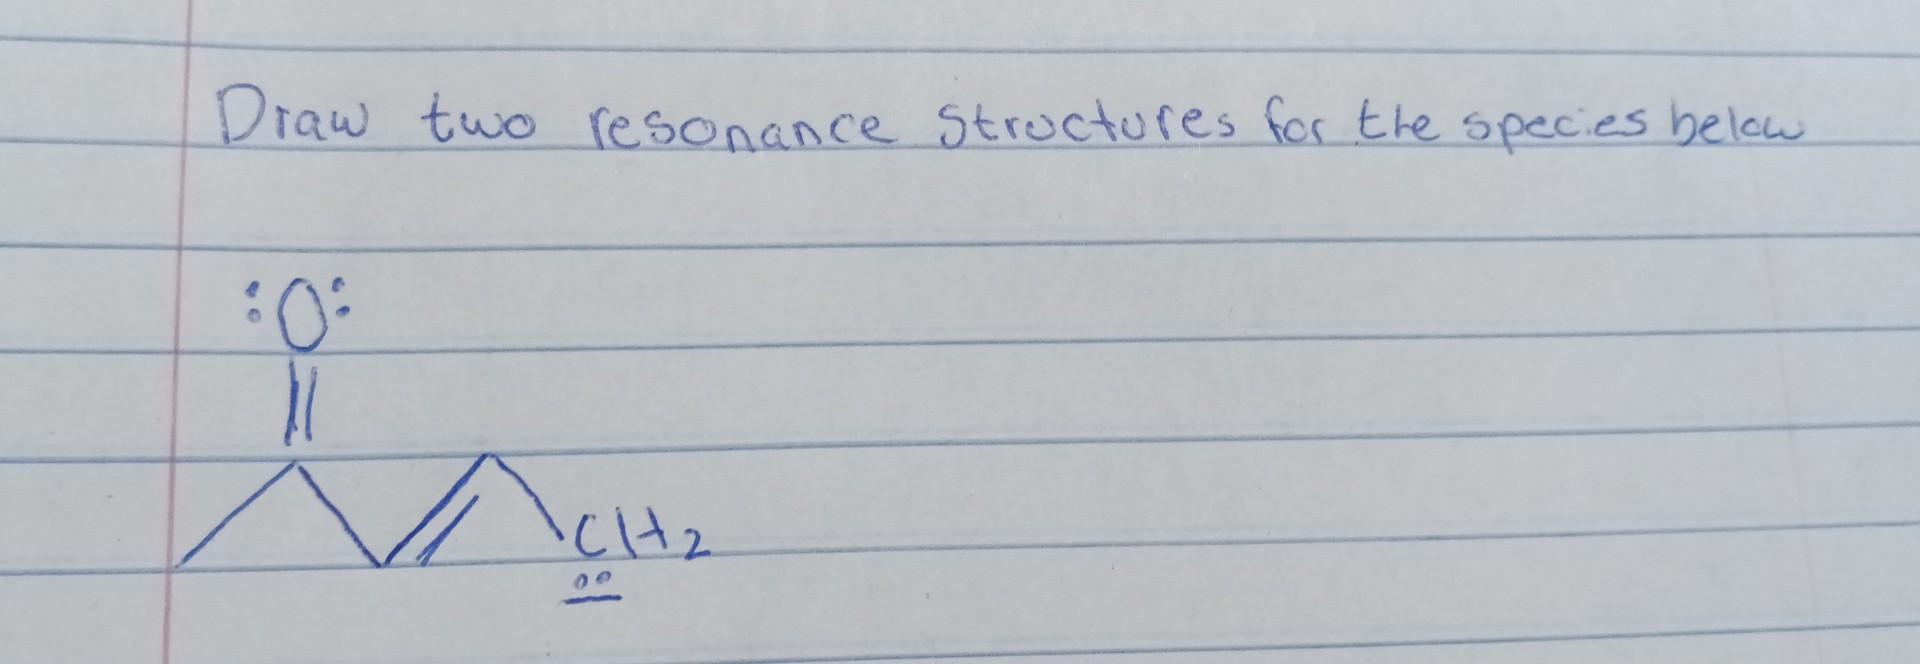 Draw two resonance structures for the species below
:O:
CH2